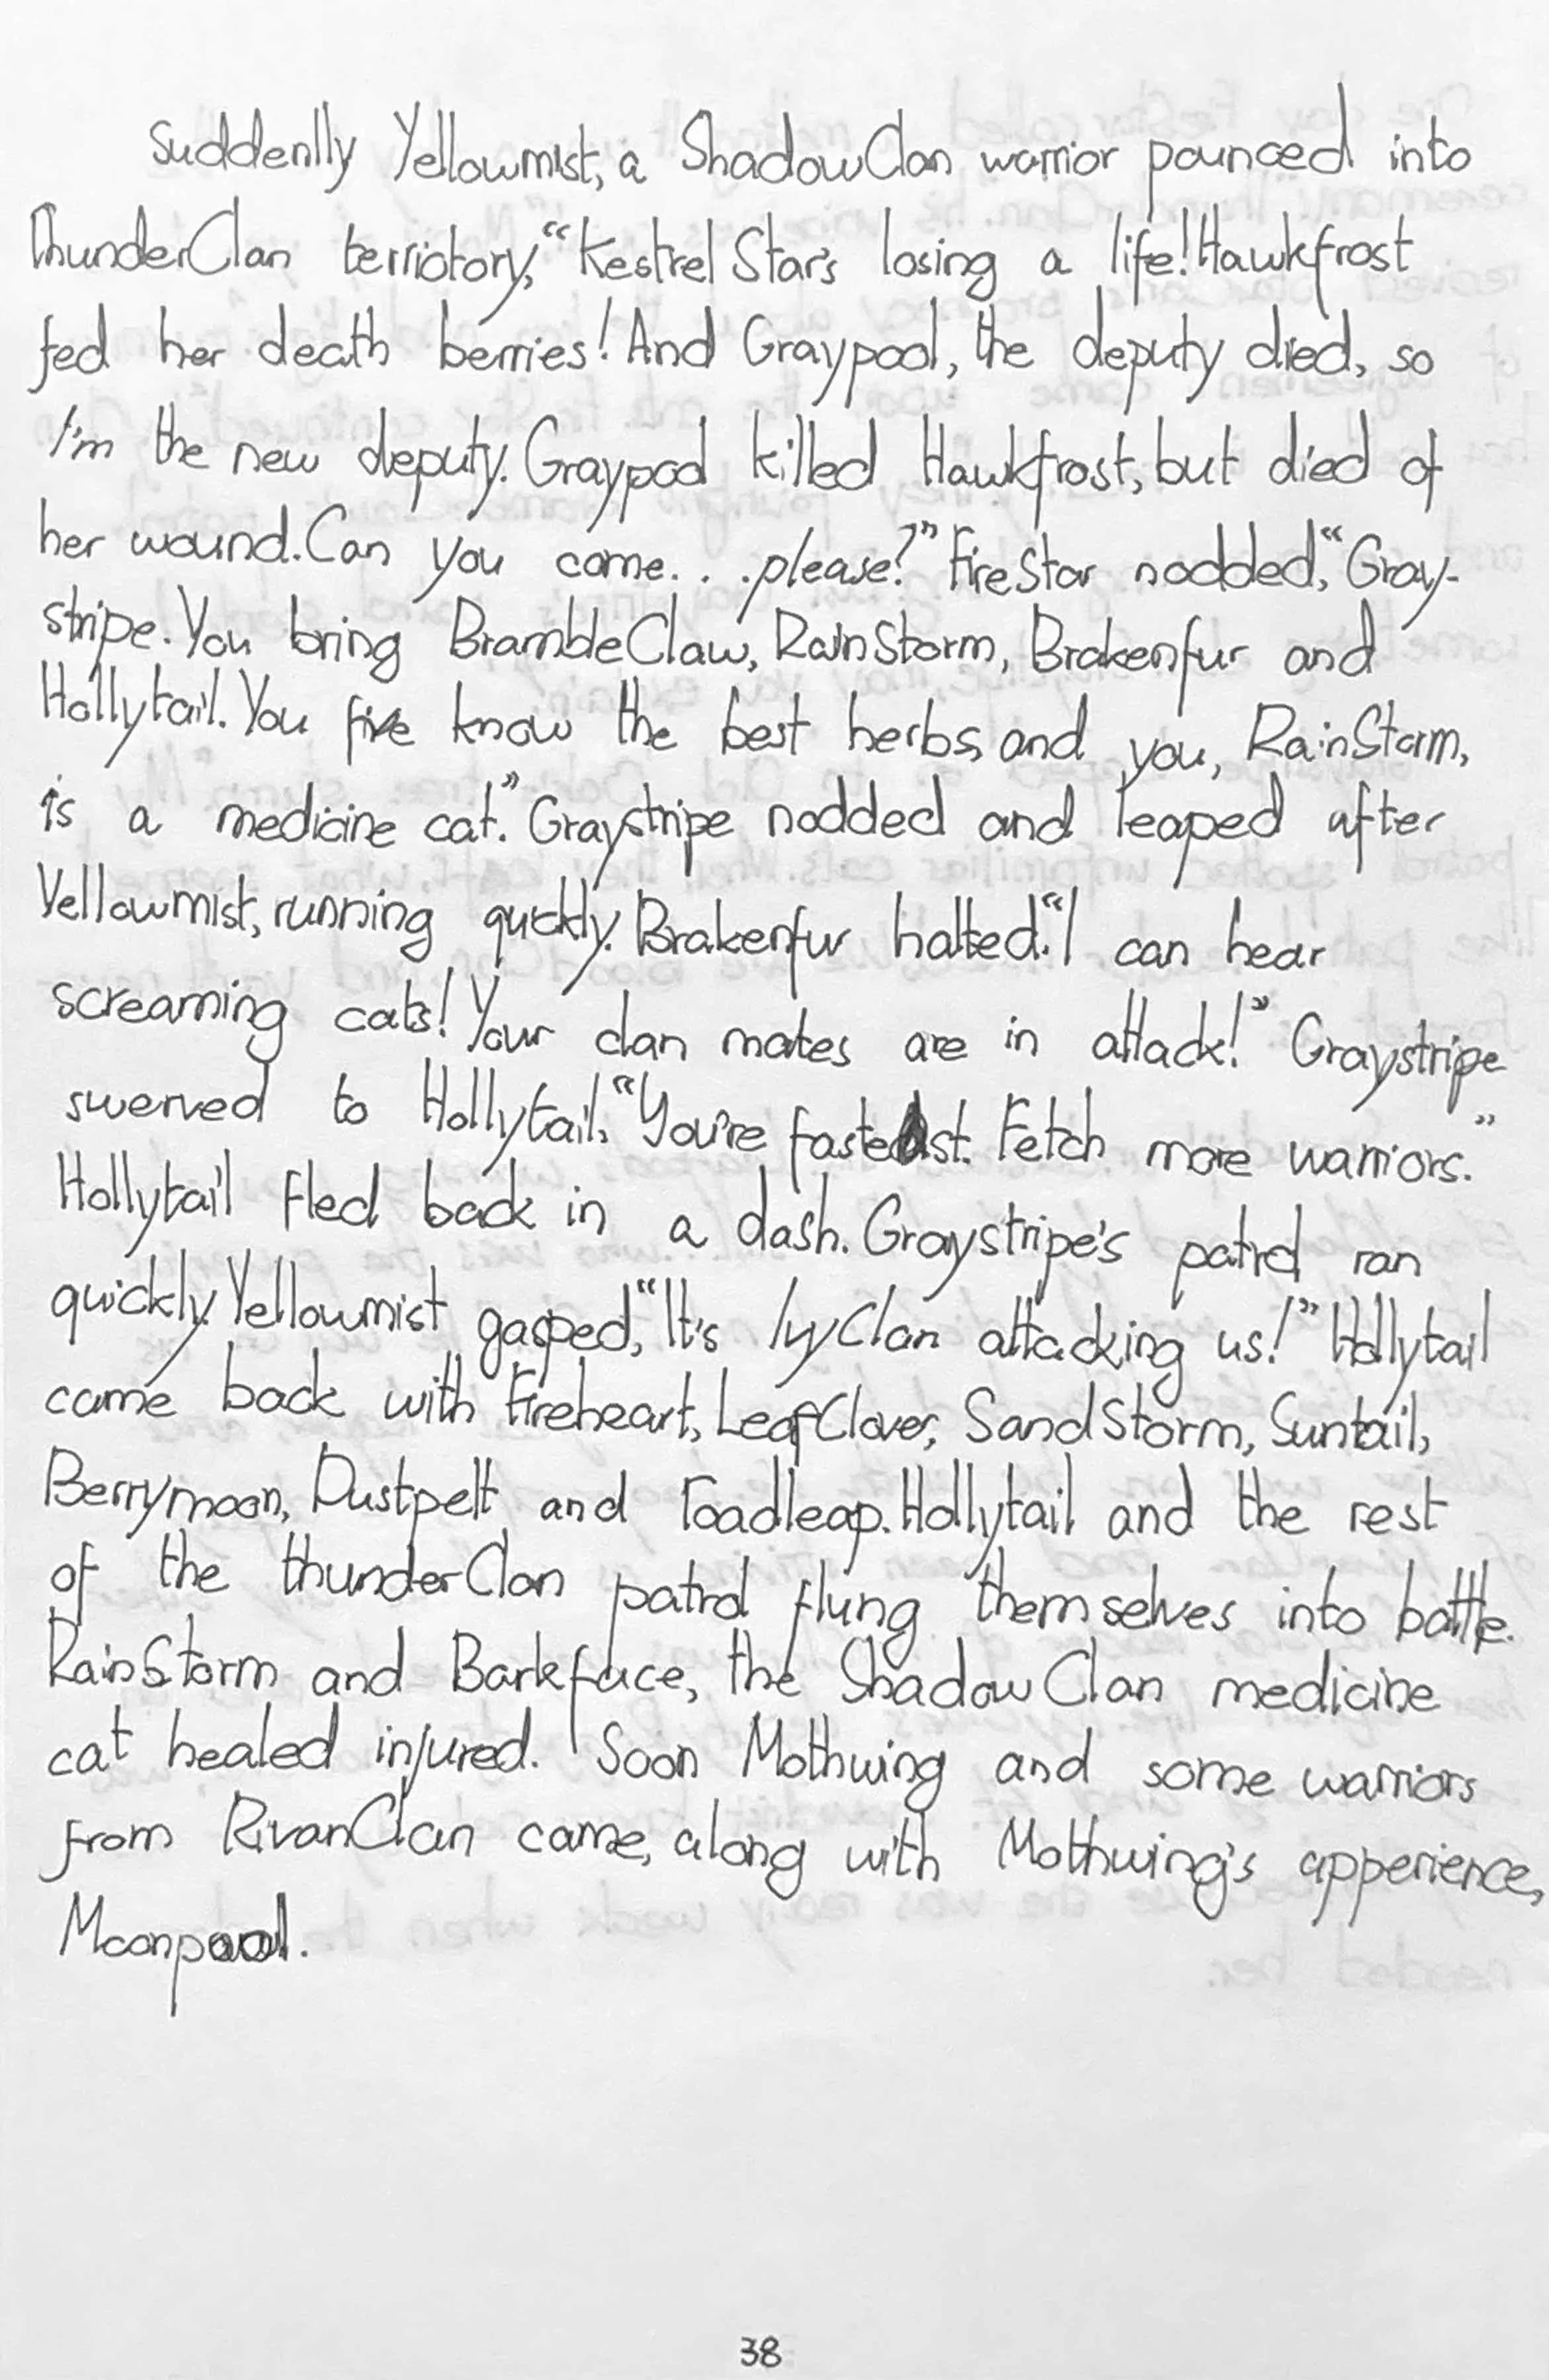 Suddenlly Yellowmist, a ShadowClan warrior pounced into
ThunderClan terriotory, "Kestrel Star's losing a life! Hawkfrost
fed her death berries! And Graypool, the deputy died, so
I'm the new deputy. Graypool killed Hawkfrost, but died of
her wound. Can you come. . . please?" FireStar nodded, "Gray-
stripe. You bring BrambleClaw, RainStorm, Brakenfur and
Hollytail. You five know the best herbs, and you, RainStorm,
is a medicine cat." Graystripe nodded and leaped after
Yellowmist, running quickly. Brakenfur halted. "I can hear
screaming cats! Your clan mates are in attack!" Graystripe
swerved to Hollytail, "You're fastest. Fetch more warriors."
Hollytail fled back in a dash. Graystripe's patrol ran
quickly. Yellowmist gasped, "It's IvyClan attacking us!" Hollytail
came back with Fireheart, LeafClover, SandStorm, Suntail,
Berrymoon, Dustpelt and Toadleap. Hollytail and the rest
of the thunderClan patrol flung themselves into battle.
RainStorm and Barkface, the ShadowClan medicine
cat healed injured. Soon Mothwing and some warriors
from RivanClan came, along with Mothwing's apperience,
Moonpool.
38